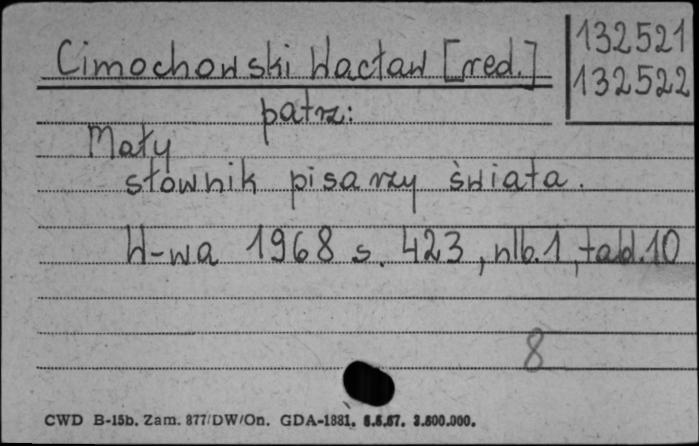 132521
132522
Cimochowski Wacław [red.]
patrz:
Mały
słownik pisarzy świata.
W-wa 1968 s. 423, nlb.1, tabl.10
8
CWD B-15b. Zam. 877/DW/On. GDA-1881. 6.5.67. 3.800.000.